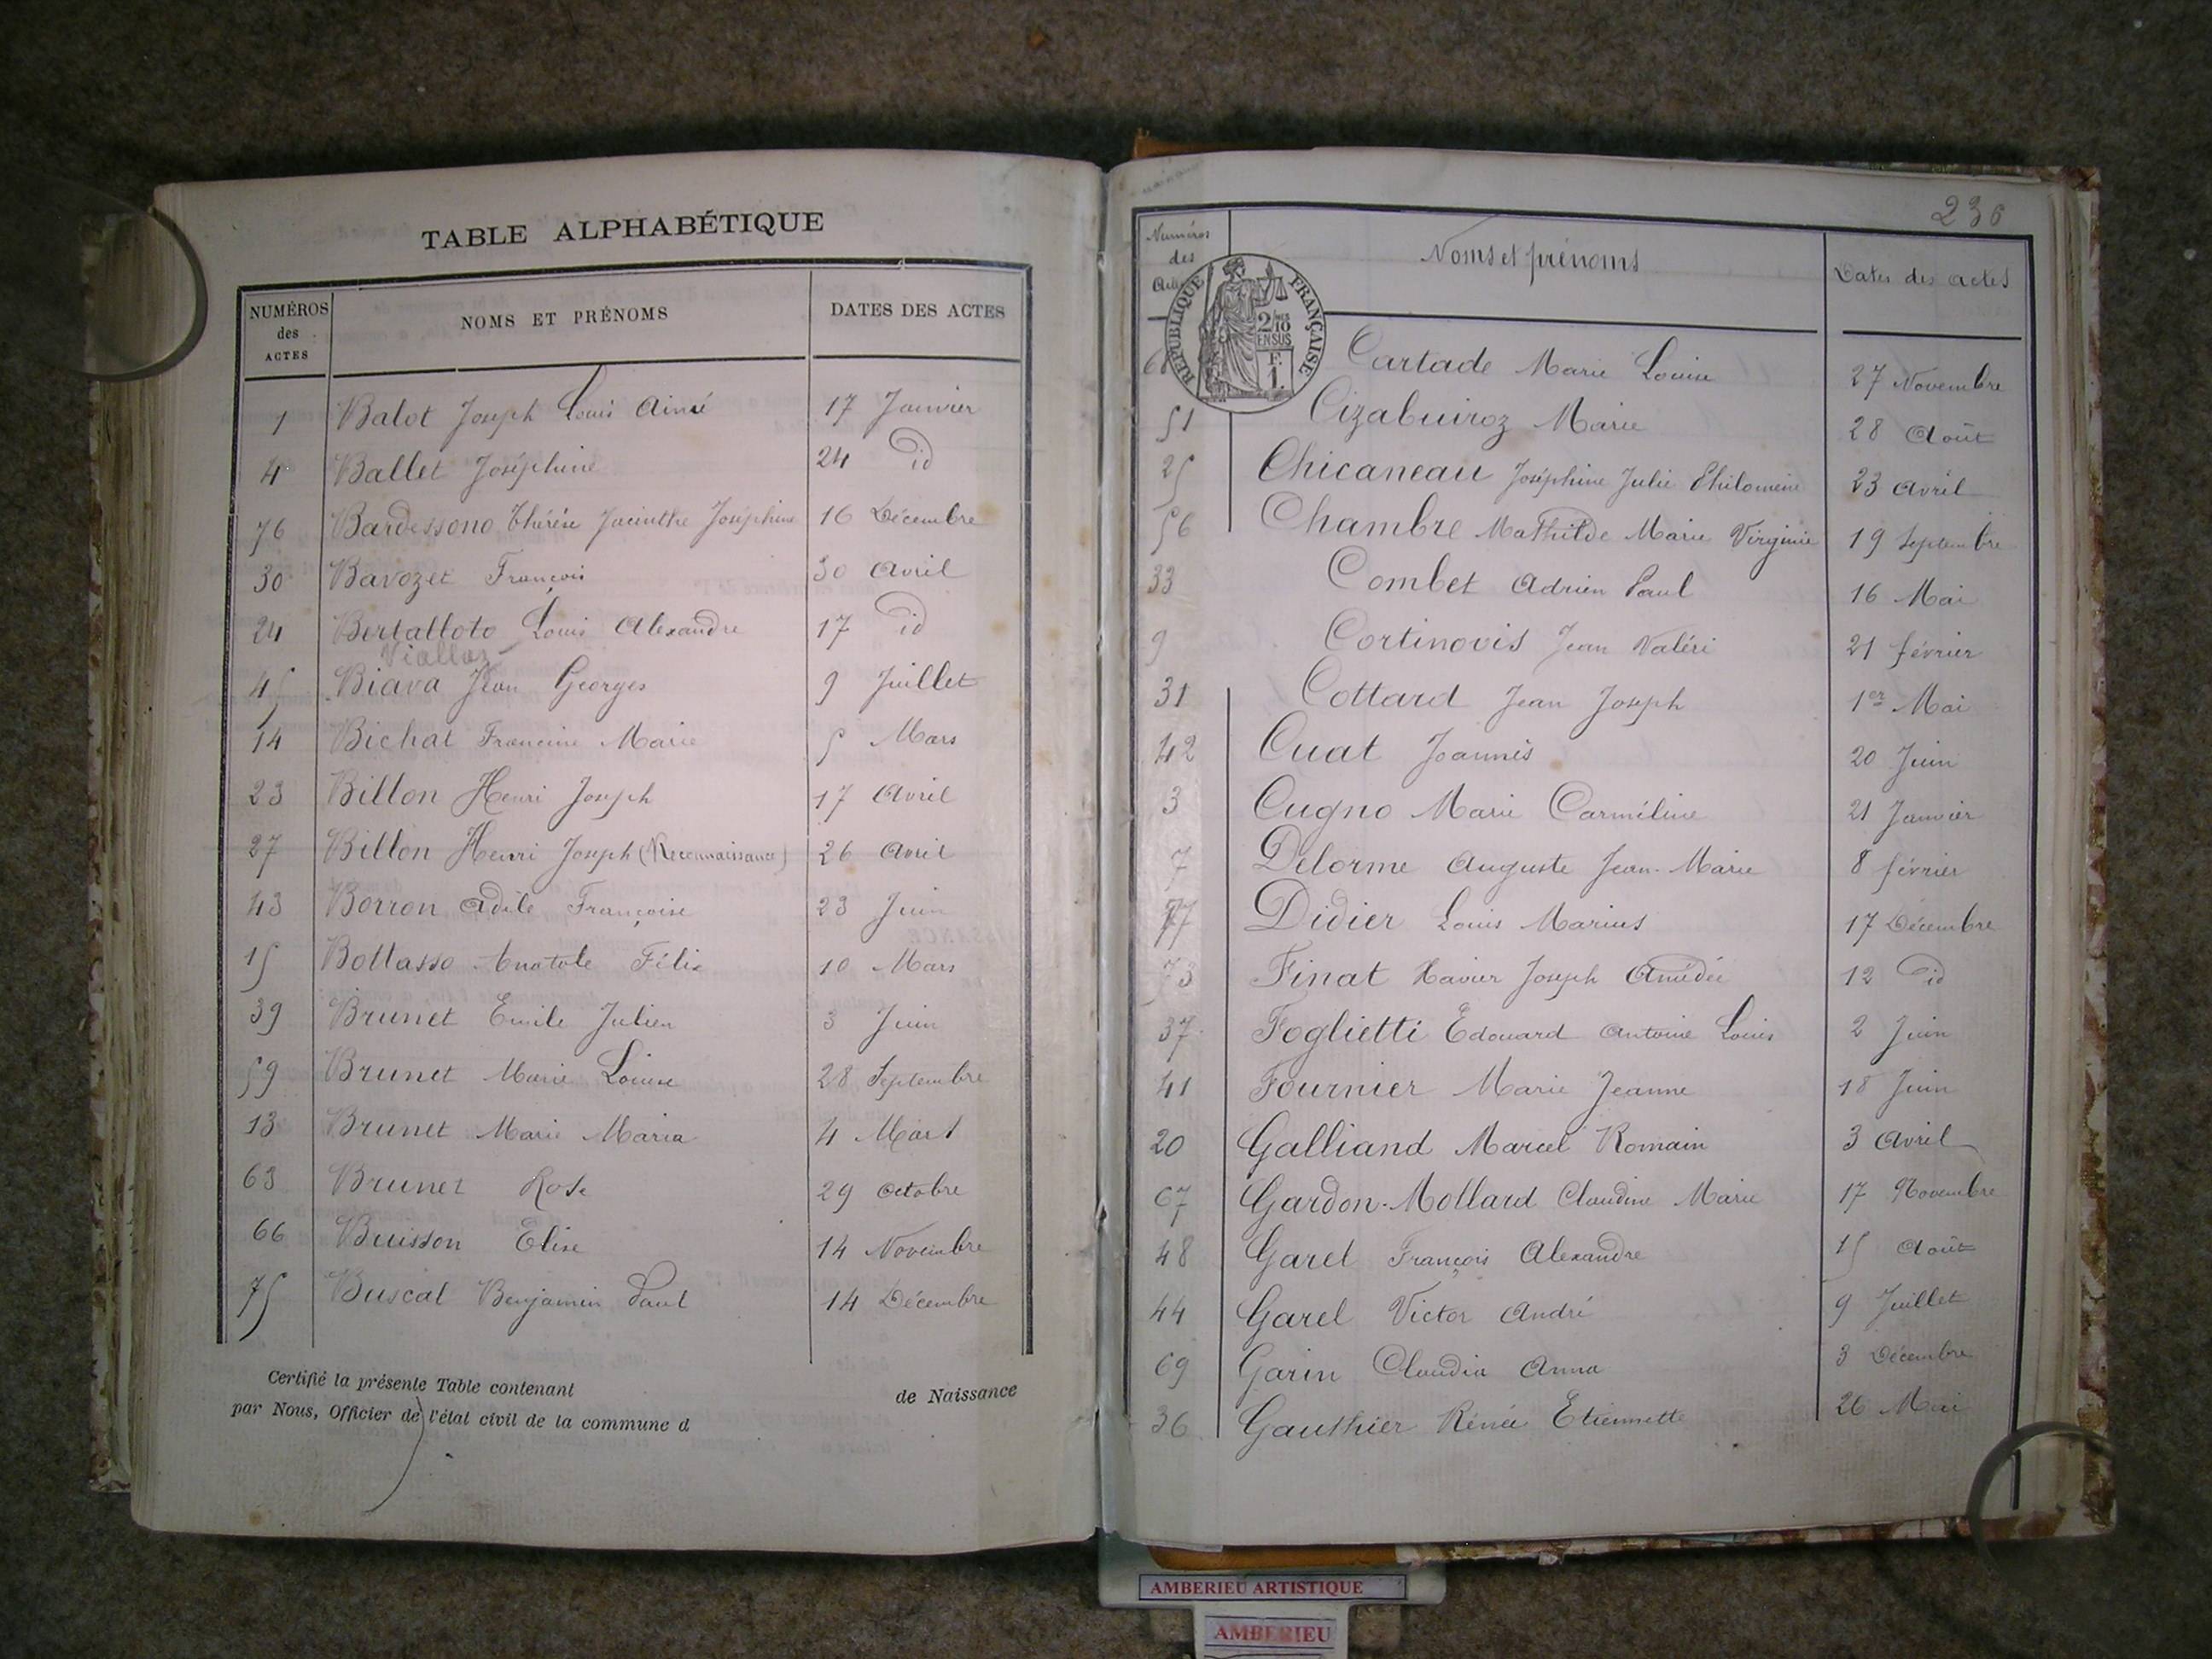 TABLE ALPHABÉTIQUE
NUMÉROS des ACTES NOMS ET PRÉNOMS DATES DES ACTES
1 Balot Joseph Louis Aimé 17 Janvier
4 Ballet Joséphine 24 id
76 Bardessono Thérèse Jacinthe Joséphine 16 Décembre
30 Bavozet François 30 Avril
24 Bertalloto Louis Alexandre 17 id
Viallaz
45 Biava Jean Georges 9 Juillet
14 Bichat Francine Marie 5 Mars
23 Billon Henri Joseph 17 Avril
27 Billon Henri Joseph (Reconnaissance) 26 Avril
43 Borron Adèle Françoise 23 Juin
15 Bottasso Anatole Félix 10 Mars
39 Brunet Emile Julien 3 Juin
59 Brunet Marie Louise 28 Septembre
13 Brunet Marie Maria 4 Mars
63 Brunet Rose 29 Octobre
66 Buisson Elise 14 Novembre
75 Buscal Benjamin Paul 14 Décembre
Certifié la présente Table contenant de Naissance
par Nous, Officier de l'état civil de la commune d
236
Numéros des Noms et prénoms Dates des actes
RÉPUBLIQUE FRANÇAISE
2/10
EN SUS
F.
1.
Cartade Marie Louise 27 Novembre
51 Cizabuiroz Marie 28 Août
25 Chicaneau Joséphine Julie Philomène 23 Avril
56 Chambre Mathilde Marie Virginie 19 Septembre
33 Combet Adrien Paul 16 Mai
9 Cortinovis Jean Valéri 21 février
31 Cottard Jean Joseph 1er Mai
42 Cuat Joannès 20 Juin
3 Cugno Marie Carméline 21 Janvier
7 Delorme Auguste Jean-Marie 8 février
77 Didier Louis Marius 17 Décembre
73 Finat Xavier Joseph Amédée 12 id
37 Foglietti Edouard Antoine Louis 2 Juin
41 Fournier Marie Jeanne 18 Juin
20 Galliand Marcel Romain 3 Avril
67 Gardon-Mollard Claudine Marie 17 Novembre
48 Garel François Alexandre 15 Août
44 Garel Victor André 9 Juillet
69 Garin Claudia Anna 3 Décembre
36 Gauthier Rénée Etiennette 26 Mai
AMBERIEU ARTISTIQUE
AMBERIEU